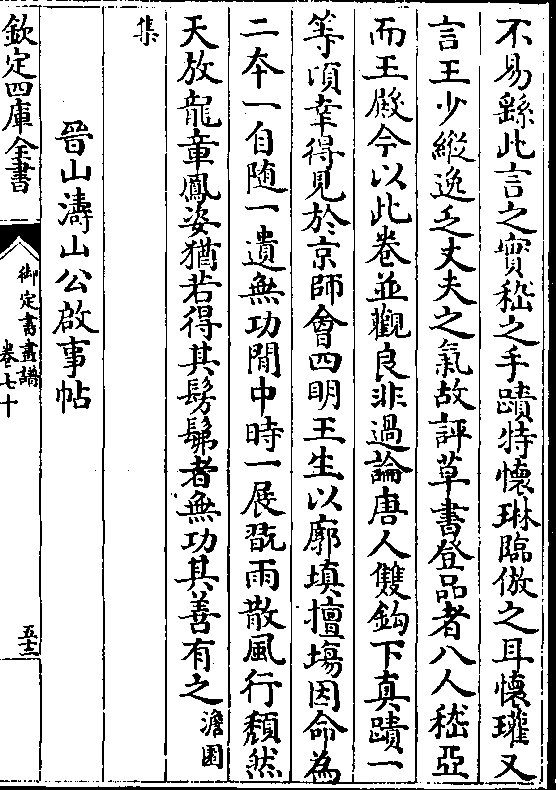 不易繇此言之實嵇之手蹟特懷琳臨倣之耳懷瓘又
言王少縱逸乏丈夫之氣故評草書登品者八人嵇亞
而王殿今以此卷並觀良非過論唐人雙鈎下真蹟一
等頃幸得見於京師會四明王生以廓填擅塲因命為
二夲一自随一遺無功閒中時一展翫雨散風行頽然
天放龍章鳳姿猶若得其髣髴者無功其善有之 澹圃
集
晉山濤山公啟事帖
欽定四庫全書 御定書畫譜 卷七十 五十三